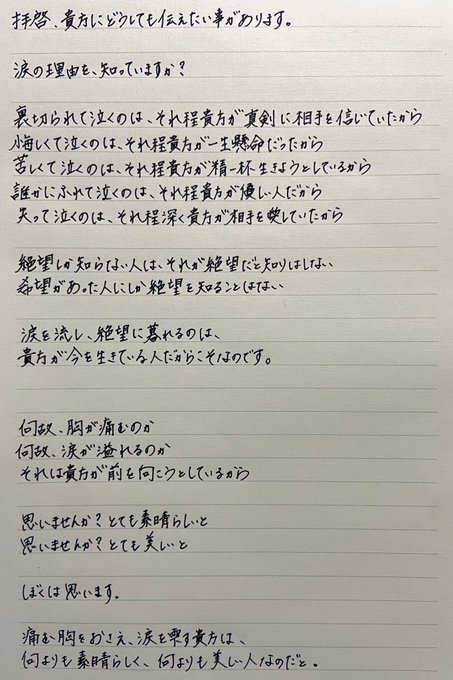 拝啓、貴方にどうしても伝えたい事があります。
涙の理由を、知っていますか?
裏切られて泣くのは、それ程貴方が真剣に相手を信じていたから
悔しくて泣くのは、それ程貴方が一生懸命だったから
苦しくて泣くのは、それ程貴方が精一杯生きようとしているから
誰かにふれて泣くのは、それ程貴方が優しい人だから
失って泣くのは、それ程深く貴方が相手を愛していたから
絶望しか知らない人は、それが絶望だと知りはしない
希望があった人にしか絶望を知ることはない
涙を流し、絶望に暮れるのは、
貴方が今を生きている人だからこそなのです。
何故、胸が痛むのか
何故、涙が溢れるのか
それは貴方が前を向こうとしているから
思いませんか?とても素晴らしいと
思いませんか?とても美しいと
ぼくは思います。
痛む胸をおさえ、涙を零す貴方は、
何よりも素晴らしく、何よりも美しい人なのだと。